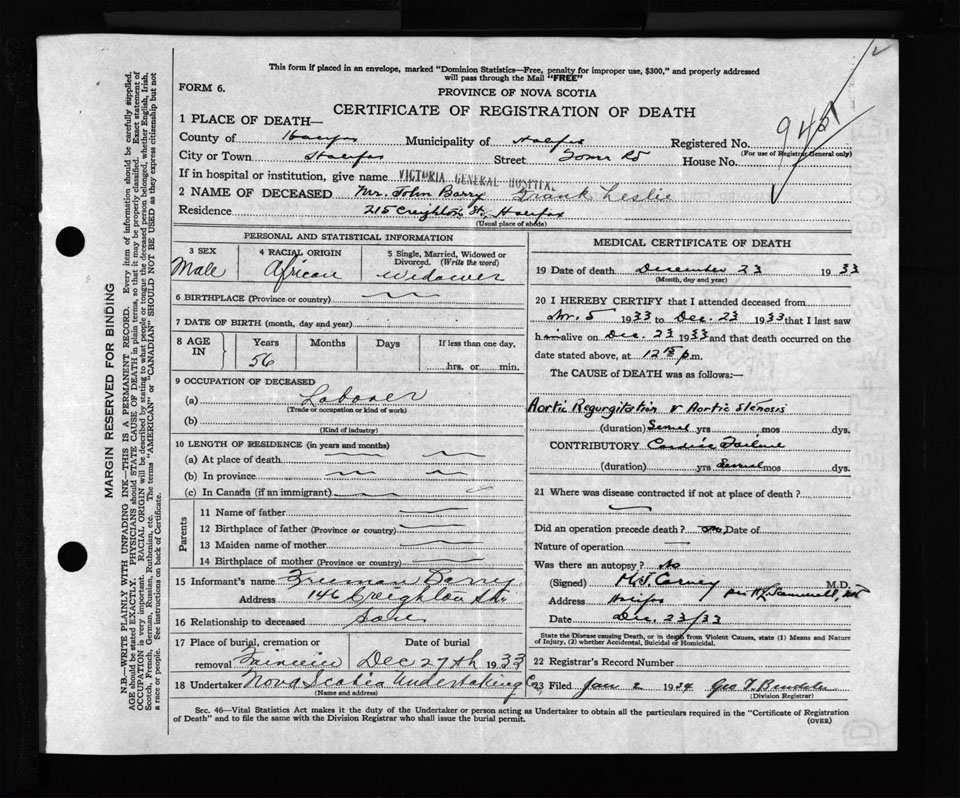 This form if placed in an envelope, marked "Dominion Statistics—Free, penalty for improper use, $300," and properly addressed
will pass through the Mail "FREE"
FORM 6.
PROVINCE OF NOVA SCOTIA
CERTIFICATE OF REGISTRATION OF DEATH
1 PLACE OF DEATH—
County of Halifax Municipality of Halifax Registered No.
(For use of Registrar General only)
City or Town Halifax Street Tower Rd House No.
If in hospital or institution, give name VICTORIA GENERAL HOSPITAL
2 NAME OF DECEASED Mr. John Barry Frank Leslie
Residence 215 Creighton St., Halifax
(Usual place of abode)
PERSONAL AND STATISTICAL INFORMATION
3 SEX
Male
4 RACIAL ORIGIN
African
5 Single, Married, Widowed or
Divorced. (Write the word)
Widower
6 BIRTHPLACE (Province or country)
7 DATE OF BIRTH (month, day and year)
8 AGE IN
Years Months Days If less than one day,
56 hrs. or min.
9 OCCUPATION OF DECEASED
(a) Laborer
(Trade or occupation or kind of work)
(b)
(Kind of industry)
10 LENGTH OF RESIDENCE (in years and months)
(a) At place of death
(b) In province
(c) In Canada (if an immigrant)
Parents
11 Name of father
12 Birthplace of father (Province or country)
13 Maiden name of mother
14 Birthplace of mother (Province or country)
15 Informant's name Freeman Barry
Address 146 Creighton St.
16 Relationship to deceased
17 Place of burial, cremation or Date of burial
removal Fairview Dec 27th 1933
18 Undertaker Nova Scotia Undertaking Co.
(Name and address)
MEDICAL CERTIFICATE OF DEATH
19 Date of death December 23 1933
(Month, day and year)
20 I HEREBY CERTIFY that I attended deceased from
5 1933 to Dec. 23 1933 that I last saw
h alive on Dec. 23 1933 and that death occurred on the
date stated above, at 12 p.m.
The CAUSE of DEATH was as follows:—
Aortic Regurgitation & Aortic Stenosis
(duration) Several yrs mos dys.
CONTRIBUTORY Cardiac Failure
(duration) yrs Several mos dys.
21 Where was disease contracted if not at place of death?
Did an operation precede death? no Date of
Nature of operation
Was there an autopsy? No
(Signed) M.D.
Address Halifax
Date Dec. 23/33
State the Disease causing Death, or in death from Violent Causes, state (1) Means and Nature
of Injury, (2) whether Accidental, Suicidal or Homicidal.
22 Registrar's Record Number
23 Filed Jan 2 1934
(Division Registrar)
Sec. 46—Vital Statistics Act makes it the duty of the Undertaker or person acting as Undertaker to obtain all the particulars required in the "Certificate of Registration
of Death" and to file the same with the Division Registrar who shall issue the burial permit.
(OVER)
MARGIN RESERVED FOR BINDING
N.B.—WRITE PLAINLY WITH UNFADING INK—THIS IS A PERMANENT RECORD. Every item of information should be carefully supplied.
AGE should be stated EXACTLY. PHYSICIANS should STATE CAUSE OF DEATH in plain terms, so that it may be properly classified. Exact statement of
OCCUPATION is very important. RACIAL ORIGIN will be described by stating to what people or tongue the deceased person belonged, whether English, Irish,
Scotch, French, German, Russian, Ruthenian, etc. The terms "AMERICAN" or "CANADIAN" SHOULD NOT BE USED as they express citizenship but not
a race or people. See instructions on back of Certificate.